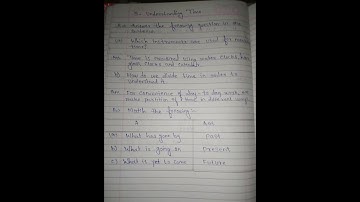 8- Understanding Time
A:- Answer the following question in one
sentence
(a) Which instruments are used for
time?
Ans Time is measured using water clocks,
clocks and calendars.
b) How do we divide time in order to
understand it
Ans:- For convenience of day- to day work, we
make partition of time in different ways.
B:- Match the following:-
A Ans
(a) What has gone by Past
b) What is going on Present
c) What is yet to come Future